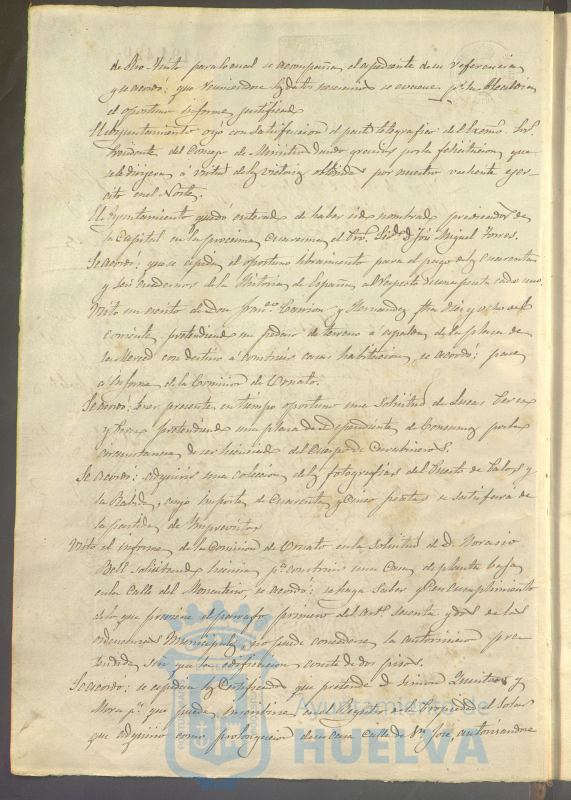 de Rio-Tinto para lo cual se acompaña el expediente de su referencia
y se acordó: que reuniendose los datos necesarios se evacue pr. la Alcaldia
el oportuno informe justificado
El Ayuntamiento oyó con satisfaccion el parte telegrafico del Excmo. Sor.
Presidente del Consejo de Ministros dando gracias por la felicitacion que
se le dirigiera á virtud de la victoria obtenida por nuestro valiente ejer-
cito en el Norte.
El Ayuntamiento quedó enterado de haber sido nombrado predicador de
la Capital en la proxima cuaresma el Pro. D. José Miguel Torres.
Se acordó: que se expida el oportuno libramiento para el pago de los cuarenta
y seis cuadernos de la Historia de España al respecto de una peseta cada uno.
Visto un escrito de Don Franco. Carrion y Hernandez fha diez y ocho del
corriente, pretendiendo un pedazo de terreno á espalda de la plaza de
la Merced con destino á construir casas habitacion, se acordó: pase
a informe de la Comision de Ornato.
Se acordó: tener presente en tiempo oportuno una solicitud de Lucas Perea
y Perea pretendiendo una plaza de Dependiente de Consumos por la
circunstancia de ser licenciado del Cuerpo de Carabineros.
Se acordó: adquirir una coleccion de las fotografias del Puerto de Palos y
la Rabida, cuyo importe de cuarenta y cinco pesetas se satisfará de
la partida de Imprevistos
Visto el informe de la Comision de Ornato en la solicitud de D. Horasio
Bell solicitando licencia pa. construir una casa de planta baja
en la calle del Monasterio, se acordó: se haga saber qe. en cumplimiento
de lo que previene el parrafo primero del arto. sesenta y dos de las
ordenanzas Municipales, no puede concederse la autorizacion pre-
tendida sin que la edificacion conste de dos pisos.
Se acordó: se expida la certificacion que pretende D. Simon Quintero y
Mora pa. que pueda inscribirse en el Registro de la Propiedad el Solar
que adquirió como prolongacion de su casa calle de Sn. José, autorizandose
Ayuntamiento de
HUELVA